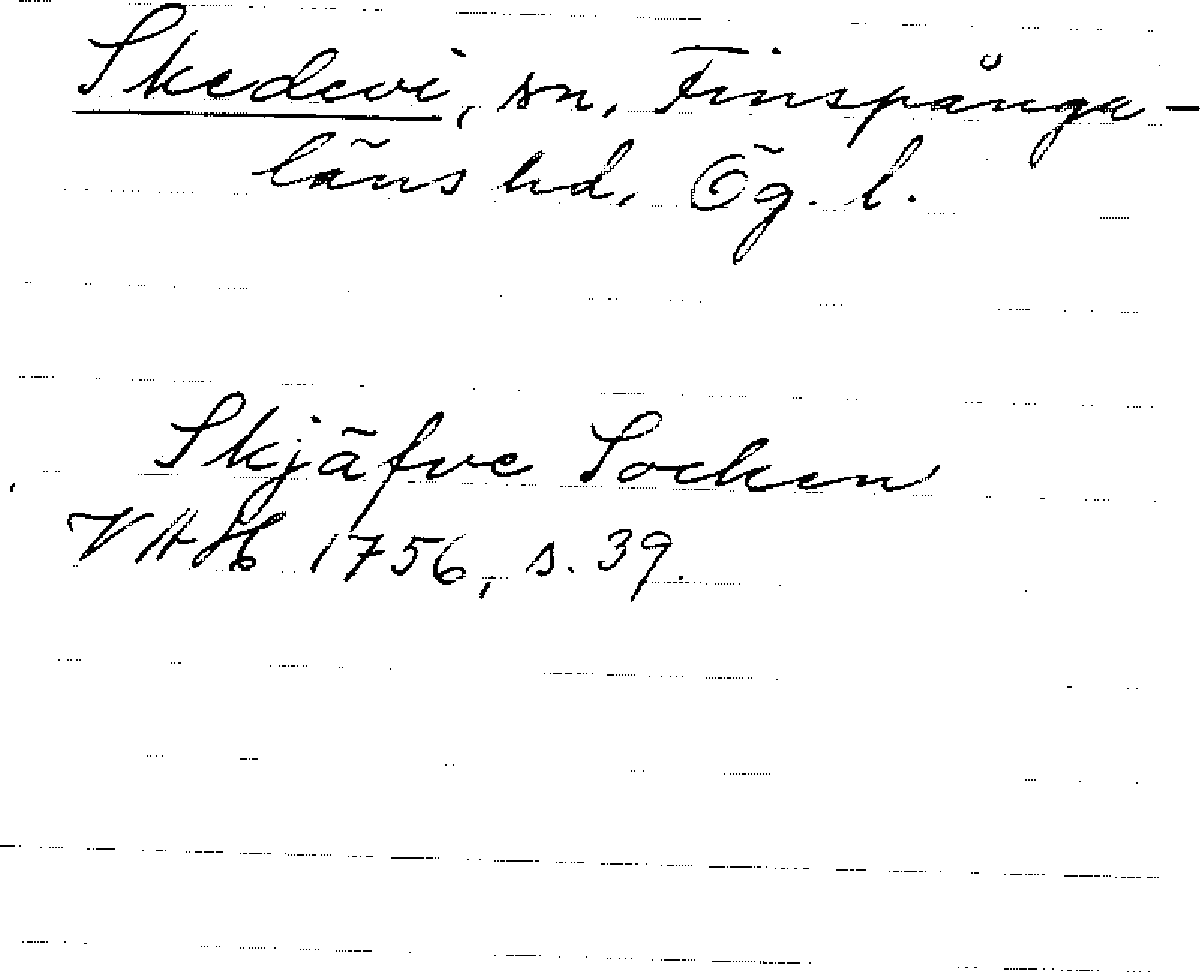 Skedevi, sn, Finspånga-
läns hd, Ög. l.
Skjäfve Socken
VAH 1756, s. 39.